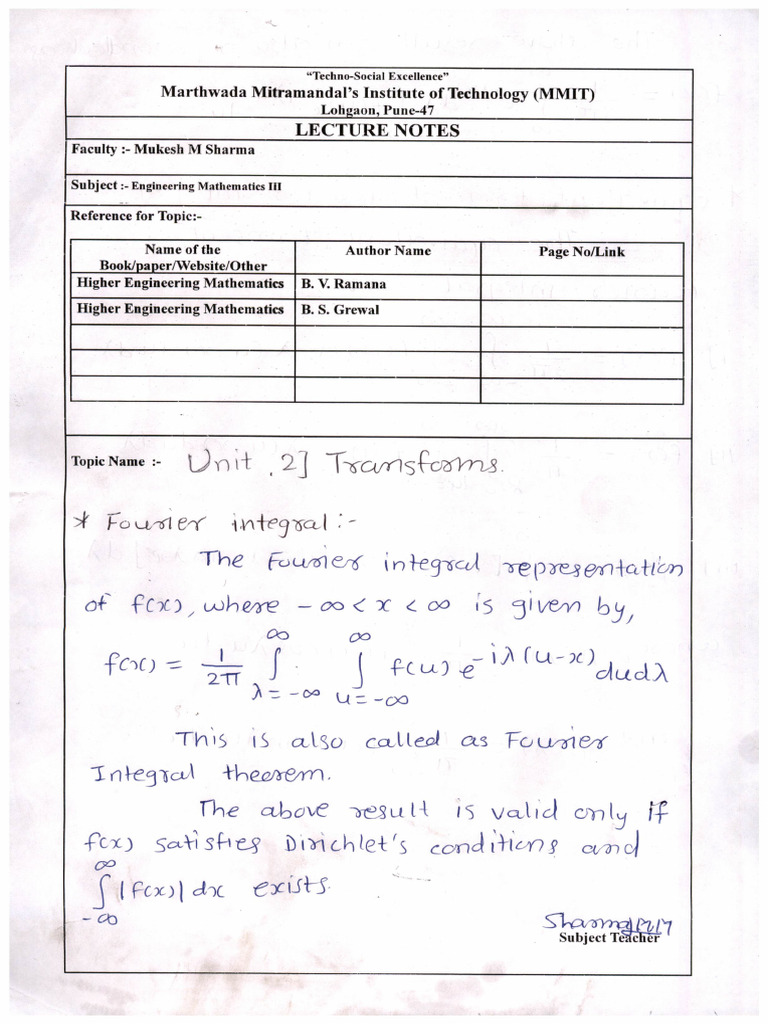 “Techno-Social Excellence”
Marthwada Mitramandal’s Institute of Technology (MMIT)
Lohgaon, Pune-47
LECTURE NOTES
Faculty :- Mukesh M Sharma
Subject :- Engineering Mathematics III
Reference for Topic:-
Name of the Book/paper/Website/Other Author Name Page No/Link
Higher Engineering Mathematics B. V. Ramana
Higher Engineering Mathematics B. S. Grewal
Topic Name :- Unit . 2] Transforms.
* Fourier integral :-
The Fourier integral representation
of f(x), where -∞ < x < ∞ is given by,
f(x) = 1/2π ∫_{λ=-∞}^{∞} ∫_{u=-∞}^{∞} f(u) e^{-iλ(u-x)} du dλ
This is also called as Fourier
Integral theorem.
The above result is valid only if
f(x) satisfies Dirichlet's conditions and
∫_{-∞}^{∞} |f(x)| dx exists.
Sharma
Subject Teacher